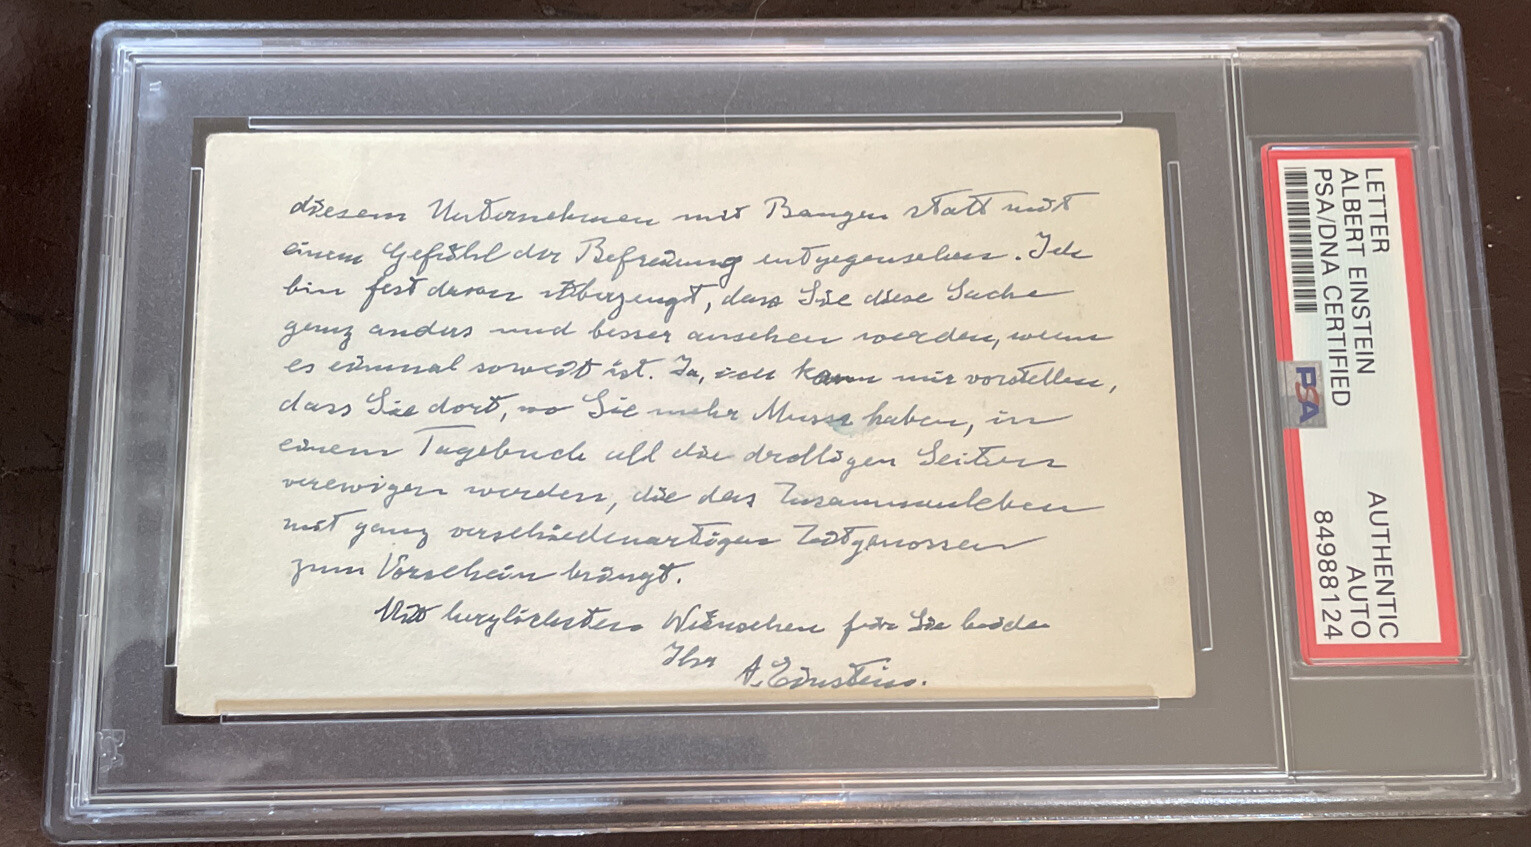 diesem Unternehmen mit Bangen statt mit
einem Gefühl der Befreiung entgegensehen. Ich
bin fest davon überzeugt, dass Sie diese Sache
ganz anders und besser ansehen werden, wenn
es einmal soweit ist. Ja, ich kann mir vorstellen,
dass Sie dort, wo Sie mehr Musse haben, in
einem Tagebuch all die drolligen Seiten
verewigen werden, die das Zusammenleben
mit ganz verschiedenartigen Zeitgenossen
zum Vorschein bringt.
Mit herzlichsten Wünschen für Sie beide
Ihr A. Einstein.
LETTER
ALBERT EINSTEIN AUTHENTIC
PSA/DNA CERTIFIED AUTO
84988124
PSA